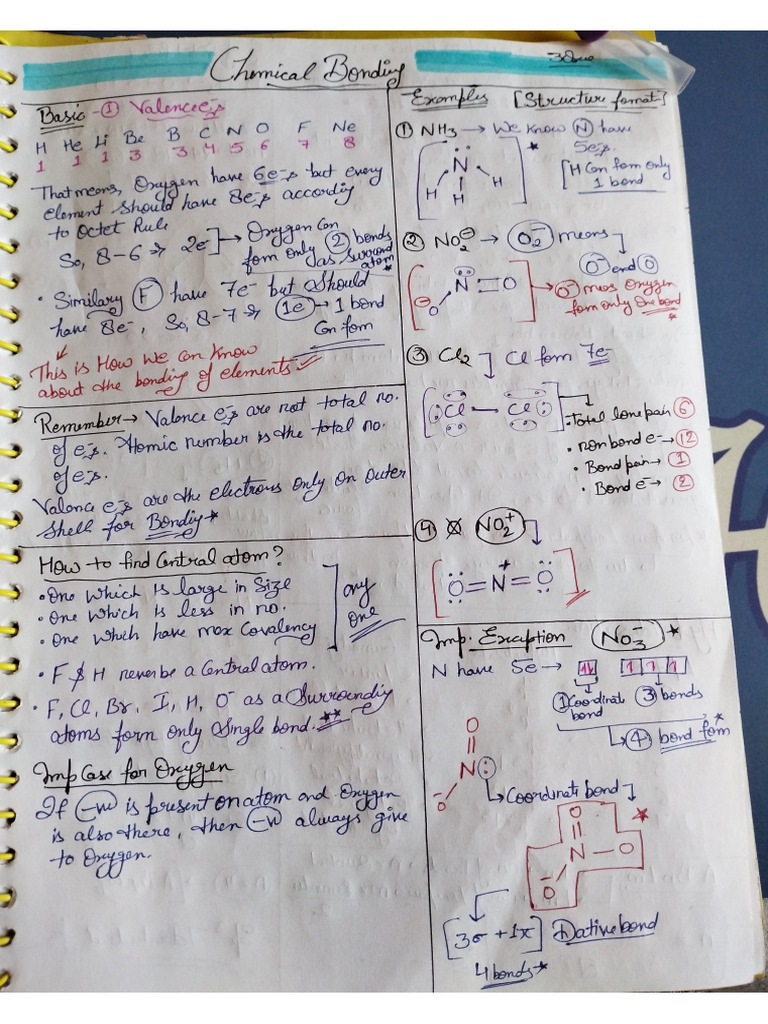 Chemical Bonding
Basic - ① Valence e⁻s
H He Li Be B C N O F Ne
1 1 1 3 3 4 5 6 7 8
That means, Oxygen have 6e⁻s but every
element should have 8e⁻s accordig
to Octet Rule
So, 8-6 → 2e⁻ → Oxygen Can
form only ② bonds
as surround
atom *
• Similary Ⓕ have 7e⁻ but should
have 8e⁻, So, 8-7 → 1e → 1 bond
Can form
This is How we can know
about the bonding of elements ✓
Remember → Valence e⁻s are not total no.
of e⁻s. Atomic number is the total no.
of e⁻s.
Valence e⁻s are the electrons only on outer
shell for Bondig *
How to find Central atom?
• One which is large in size
• One which is less in no.
• One which have max Covalency
any
one
• F & H never be a Central atom.
• F, Cl, Br, I, H, O⁻ as a Surroundig
atoms form only Single bond. **
Imp Case for Oxygen
If (-ve) is present on atom and Oxygen
is also there, then (-ve) always give
to Oxygen.
Examples [Structure format]
① NH₃ → We know Ⓝ have
5e⁻s.
[H Can form only
1 bond
N
H H H
*
② NO₂⁻ → O₂⁻ means
O⁻ and O
⊖O N = O
O⁻ means Oxygen
form only One bond
*
③ Cl₂ Cl form 7e⁻
Cl — Cl
• Total lone pair ⑥
• non bond e⁻ → ⑫
• Bond pair → ①
• Bond e⁻ → ②
④ NO₂⁺
O = N⁺ = O
Imp. Exception NO₃⁻ *
N have 5e⁻ → 1l 1 1 1
① Coordinat ③ bonds
bond
④ bond form *
O
N :
O⁻
Coordinate bond
O
N — O
O⁻
*
[3σ + 1π] Dative bond
4 bonds *